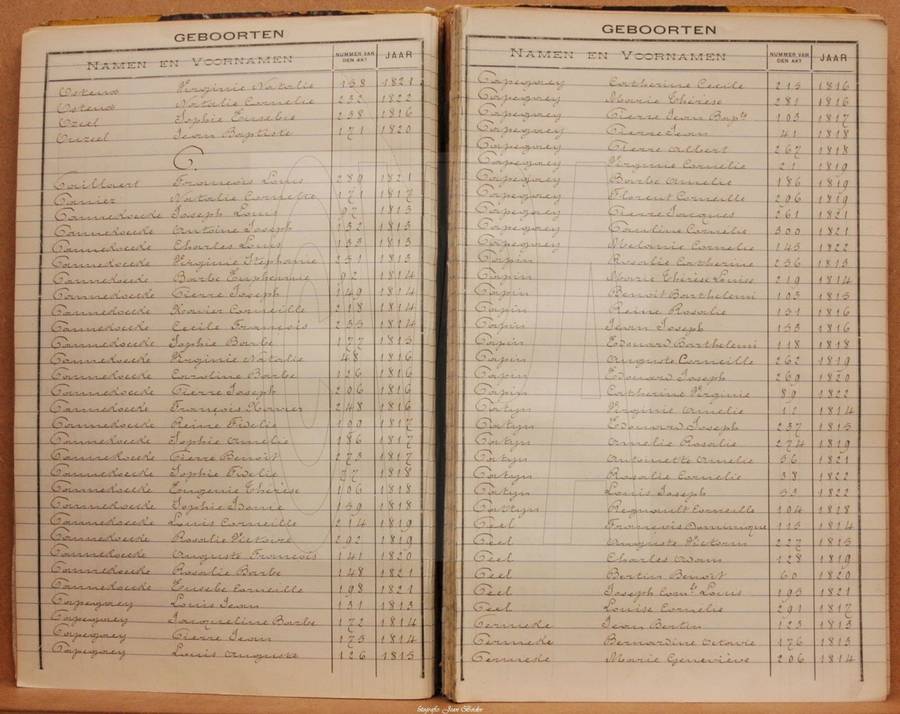 GEBOORTEN
NAMEN EN VOORNAMEN NUMMER VAN DEN AKT JAAR
Ostend Virginie Natalie 158 1821
Ostend Natalie Cornelie 232 1822
Ozeel Sophie Eusebie 238 1816
Ouzeel Jean Baptiste 171 1820
C.
Cailliaert François Louis 289 1821
Canier Natalie Cornelie 171 1817
Cannekoecke Joseph Louis 97 1813
Cannekoecke Antoine Joseph 132 1813
Cannekoecke Charles Louis 133 1813
Cannekoecke Virginie Stéphanie 251 1813
Cannekoecke Barbe Euphemme 92 1814
Cannekoecke Pierre Joseph 149 1814
Cannekoecke Xavier Corneille 218 1814
Cannekoecke Cecile François 235 1814
Cannekoecke Sophie Barbe 177 1815
Cannekoecke Virginie Natalie 48 1816
Cannekoecke Caroline Barbe 126 1816
Cannekoecke Pierre Joseph 206 1816
Cannekoecke François Xavier 248 1816
Cannekoecke Reine Fidelie 199 1817
Cannekoecke Sophie Amelie 186 1817
Cannekoecke Pierre Benoit 273 1817
Cannekoecke Sophie Fidelie 77 1818
Cannekoecke Eugenie Thérèse 106 1818
Cannekoecke Sophie 159 1818
Cannekoecke Louis Corneille 214 1819
Cannekoecke Rosalie Victoire 292 1819
Cannekoecke Auguste François 141 1820
Cannekoecke Rosalie Barbe 148 1821
Cannekoecke Eusebe Corneille 198 1821
Capegoey Louis Jean 131 1813
Capegoey Jacqueline Barbe 172 1814
Capegoey Pierre Jean 173 1814
Capegoey Louis Auguste 126 1815
GEBOORTEN
NAMEN EN VOORNAMEN NUMMER VAN DEN AKT JAAR
Capegoey Catherine Cecile 215 1816
Capegoey Marie Thérèse 281 1816
Capegoey Pierre Jean Bapte 103 1817
Capegoey Pierre Jean 41 1818
Capegoey Pierre Albert 267 1818
Capegoey Virginie Cornelie 21 1819
Capegoey Barbe Amelie 186 1819
Capegoey Florent Corneille 296 1819
Capegoey Pierre Jacques 261 1821
Capegoey Caroline Cornelie 300 1821
Capegoey Melanie Cornelie 145 1822
Capin Rosalie Catherine 236 1813
Capin Marie Thérèse Louise 219 1814
Capin Benoit Barthelemi 103 1815
Capin Reine Rosalie 131 1816
Capin Jean Joseph 153 1816
Capin Edouard Barthelemi 118 1818
Capin Auguste Corneille 262 1819
Capin Edouard Joseph 269 1820
Capin Catherine Virginie 89 1822
Catyn Virginie Amelie 12 1814
Catyn Edouard Joseph 237 1815
Catyn Amelie Rosalie 274 1819
Catyn Antoinette Amelie 36 1821
Catyn Rosalie Cornelie 38 1822
Catyn Louis Joseph 52 1822
Cattyn Regnault Corneille 104 1818
Ceel François Dominique 115 1814
Ceel Auguste Victorin 227 1815
Ceel Charles Adam 128 1819
Ceel Bertin Benoit 60 1820
Ceel Joseph Louis 195 1821
Ceel Louise Cornelie 291 1817
Cermede Jean Bertin 123 1813
Cermede Bernardine Octavie 176 1813
Cermede Marie Geneviève 206 1814